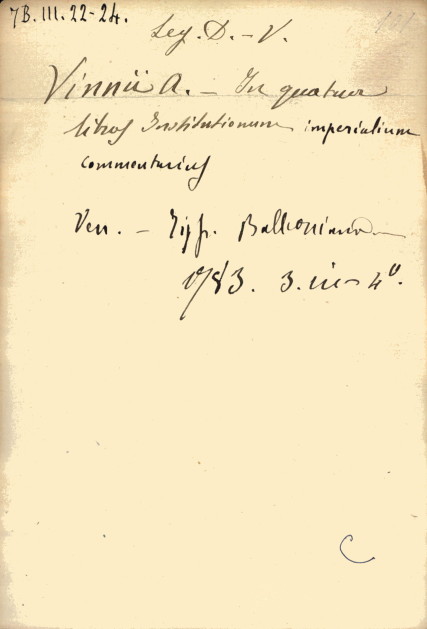 7B.III.22-24.
Leg. D. - V.
Vinnii A. - In quatuor
libros Institutionum imperialium
commentarius
Ven. - Tip. Balleoniana
1783. 3. in - 4°.
C